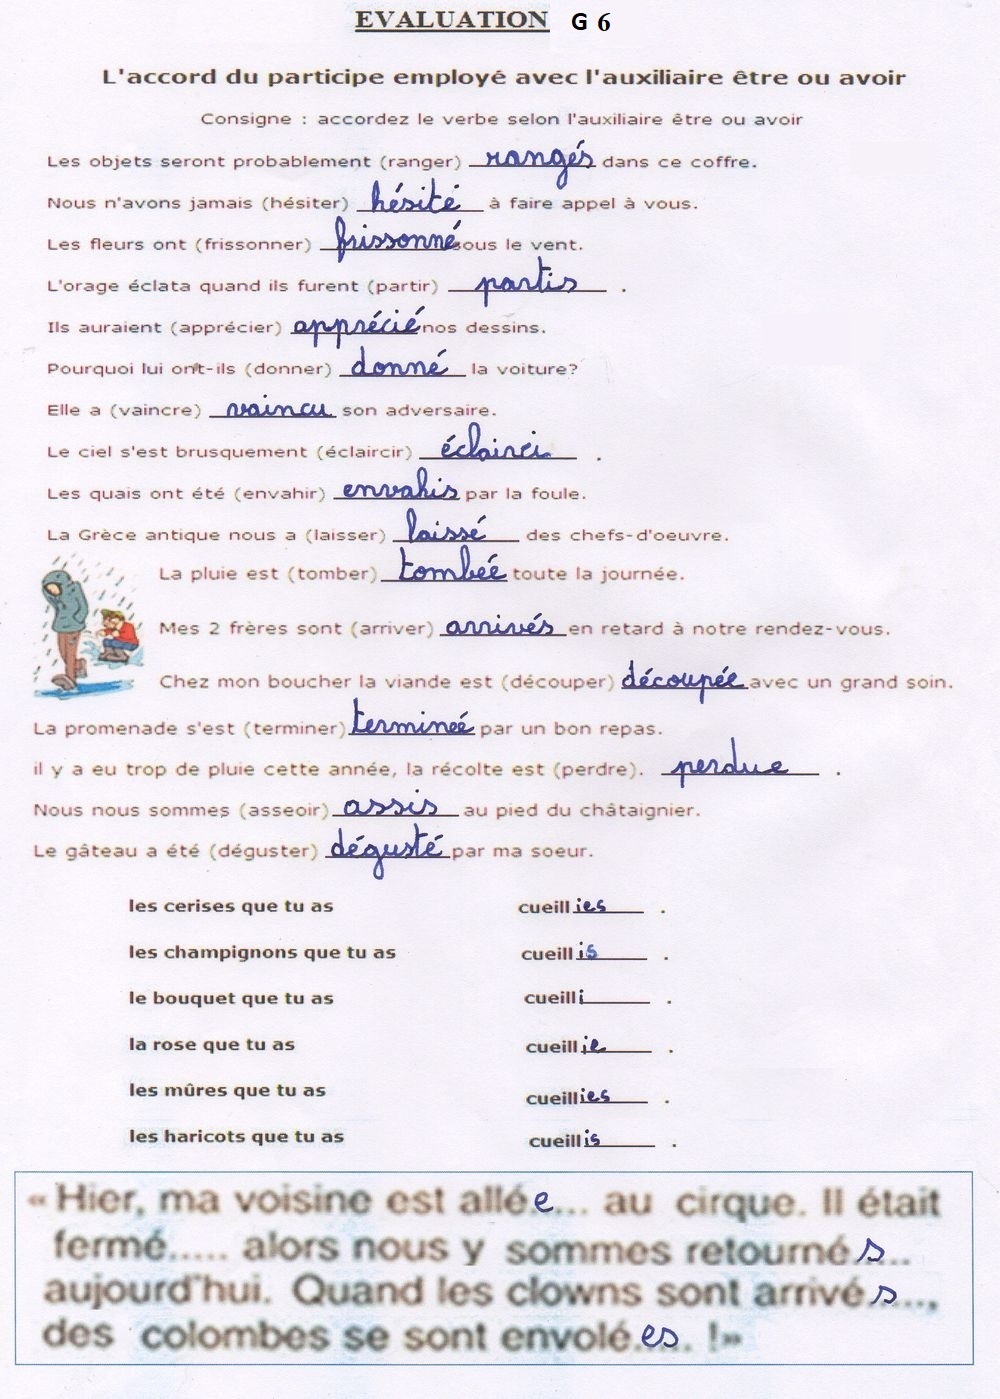 EVALUATION G 6
L'accord du participe employé avec l'auxiliaire être ou avoir
Consigne : accordez le verbe selon l'auxiliaire être ou avoir
Les objets seront probablement (ranger) rangés dans ce coffre.
Nous n'avons jamais (hésiter) hésité à faire appel à vous.
Les fleurs ont (frissonner) frissonné sous le vent.
L'orage éclata quand ils furent (partir) partis .
Ils auraient (apprécier) apprécié nos dessins.
Pourquoi lui ont-ils (donner) donné la voiture?
Elle a (vaincre) vaincu son adversaire.
Le ciel s'est brusquement (éclaircir) éclairci .
Les quais ont été (envahir) envahis par la foule.
La Grèce antique nous a (laisser) laissé des chefs-d'oeuvre.
La pluie est (tomber) tombée toute la journée.
Mes 2 frères sont (arriver) arrivés en retard à notre rendez-vous.
Chez mon boucher la viande est (découper) découpée avec un grand soin.
La promenade s'est (terminer) terminée par un bon repas.
il y a eu trop de pluie cette année, la récolte est (perdre). perdue .
Nous nous sommes (asseoir) assis au pied du châtaignier.
Le gâteau a été (déguster) dégusté par ma soeur.
les cerises que tu as cueillies .
les champignons que tu as cueillis .
le bouquet que tu as cueilli .
la rose que tu as cueillie .
les mûres que tu as cueillies .
les haricots que tu as cueillis .
« Hier, ma voisine est allée... au cirque. Il était
fermé..... alors nous y sommes retournés...
aujourd'hui. Quand les clowns sont arrivés....,
des colombes se sont envolées. !»